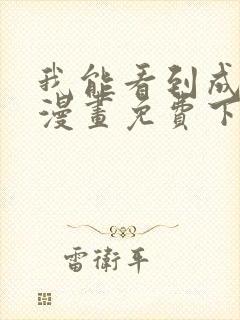 我能看到成
漫畫免費下
雷衛平